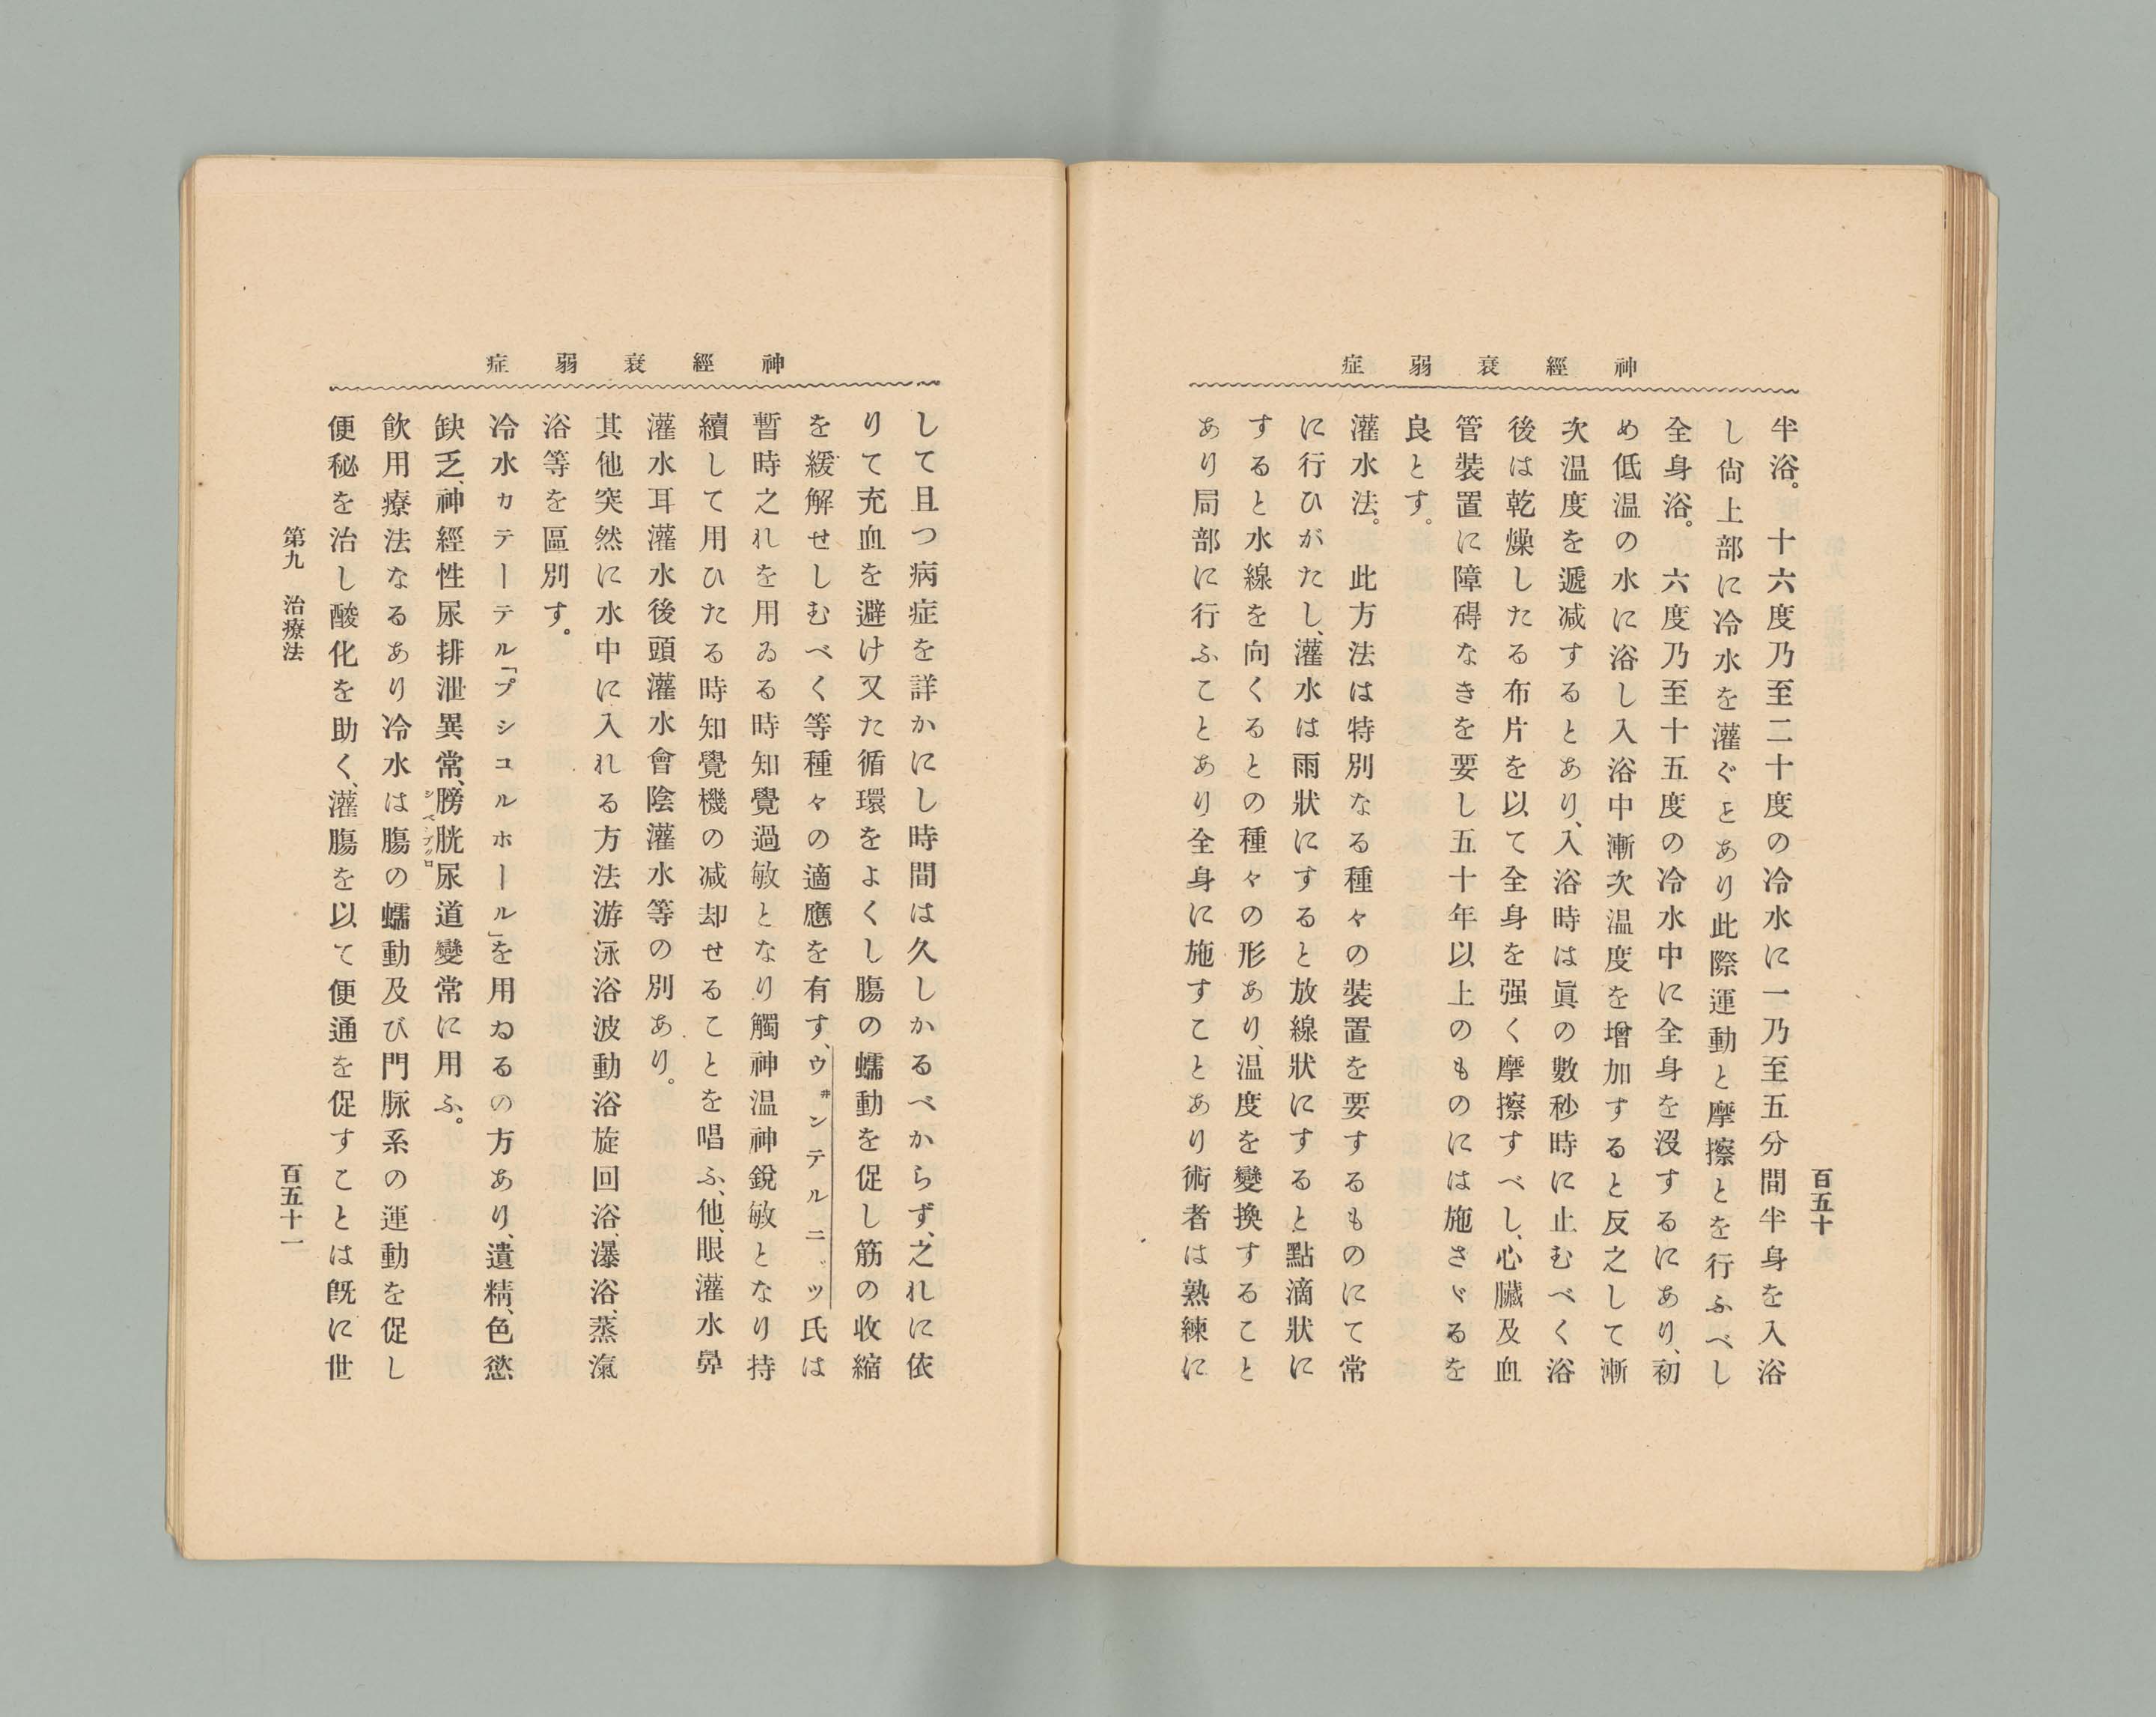 神經衰弱症
半浴。　十六度乃至二十度の冷水に一乃至五分間半身を入浴
し尙上部に冷水を灌ぐとあり此際運動と摩擦とを行ふべし
全身浴。　六度乃至十五度の冷水中に全身を沒するにあり、初
め低温の水に浴し入浴中漸次温度を增加すると反之して漸
次温度を遞减するとあり、入浴時は眞の數秒時に止むべく浴
後は乾燥したる布片を以て全身を强く摩擦すべし、心臟及血
管裝置に障碍なきを要し五十年以上のものには施さゞるを
良とす。
灌水法。　此方法は特別なる種々の裝置を要するものにて常
に行ひがたし、灌水は雨狀にすると放線狀にすると點滴狀に
すると水線を向くるとの種々の形あり、温度を變換すること
あり局部に行ふことあり全身に施すことあり術者は熟練に
百五十
神經衰弱症
して且つ病症を詳かにし時間は久しかるべからず、之れに依
りて充血を避け又た循環をよくし腸の蠕動を促し筋の收縮
を緩解せしむべく等種々の適應を有す、ウ井ンテルニッツ氏は
暫時之れを用ゐる時知覺過敏となり觸神温神銳敏となり持
續して用ひたる時知覺機の减却せることを唱ふ、他、眼灌水鼻
灌水耳灌水後頭灌水會陰灌水等の別あり。
其他突然に水中に入れる方法游泳浴波動浴旋回浴、瀑浴、蒸滊
浴等を區別す。
冷水カテーテル「プシコルホール」を用ゐるの方あり、遺精、色慾
缺乏、神經性尿排泄異常、膀胱尿道變常に用ふ。
飮用療法なるあり冷水は腸の蠕動及び門脉系の運動を促し
便秘を治し酸化を助く、灌腸を以て便通を促すことは旣に世
第九　治療法
百五十一